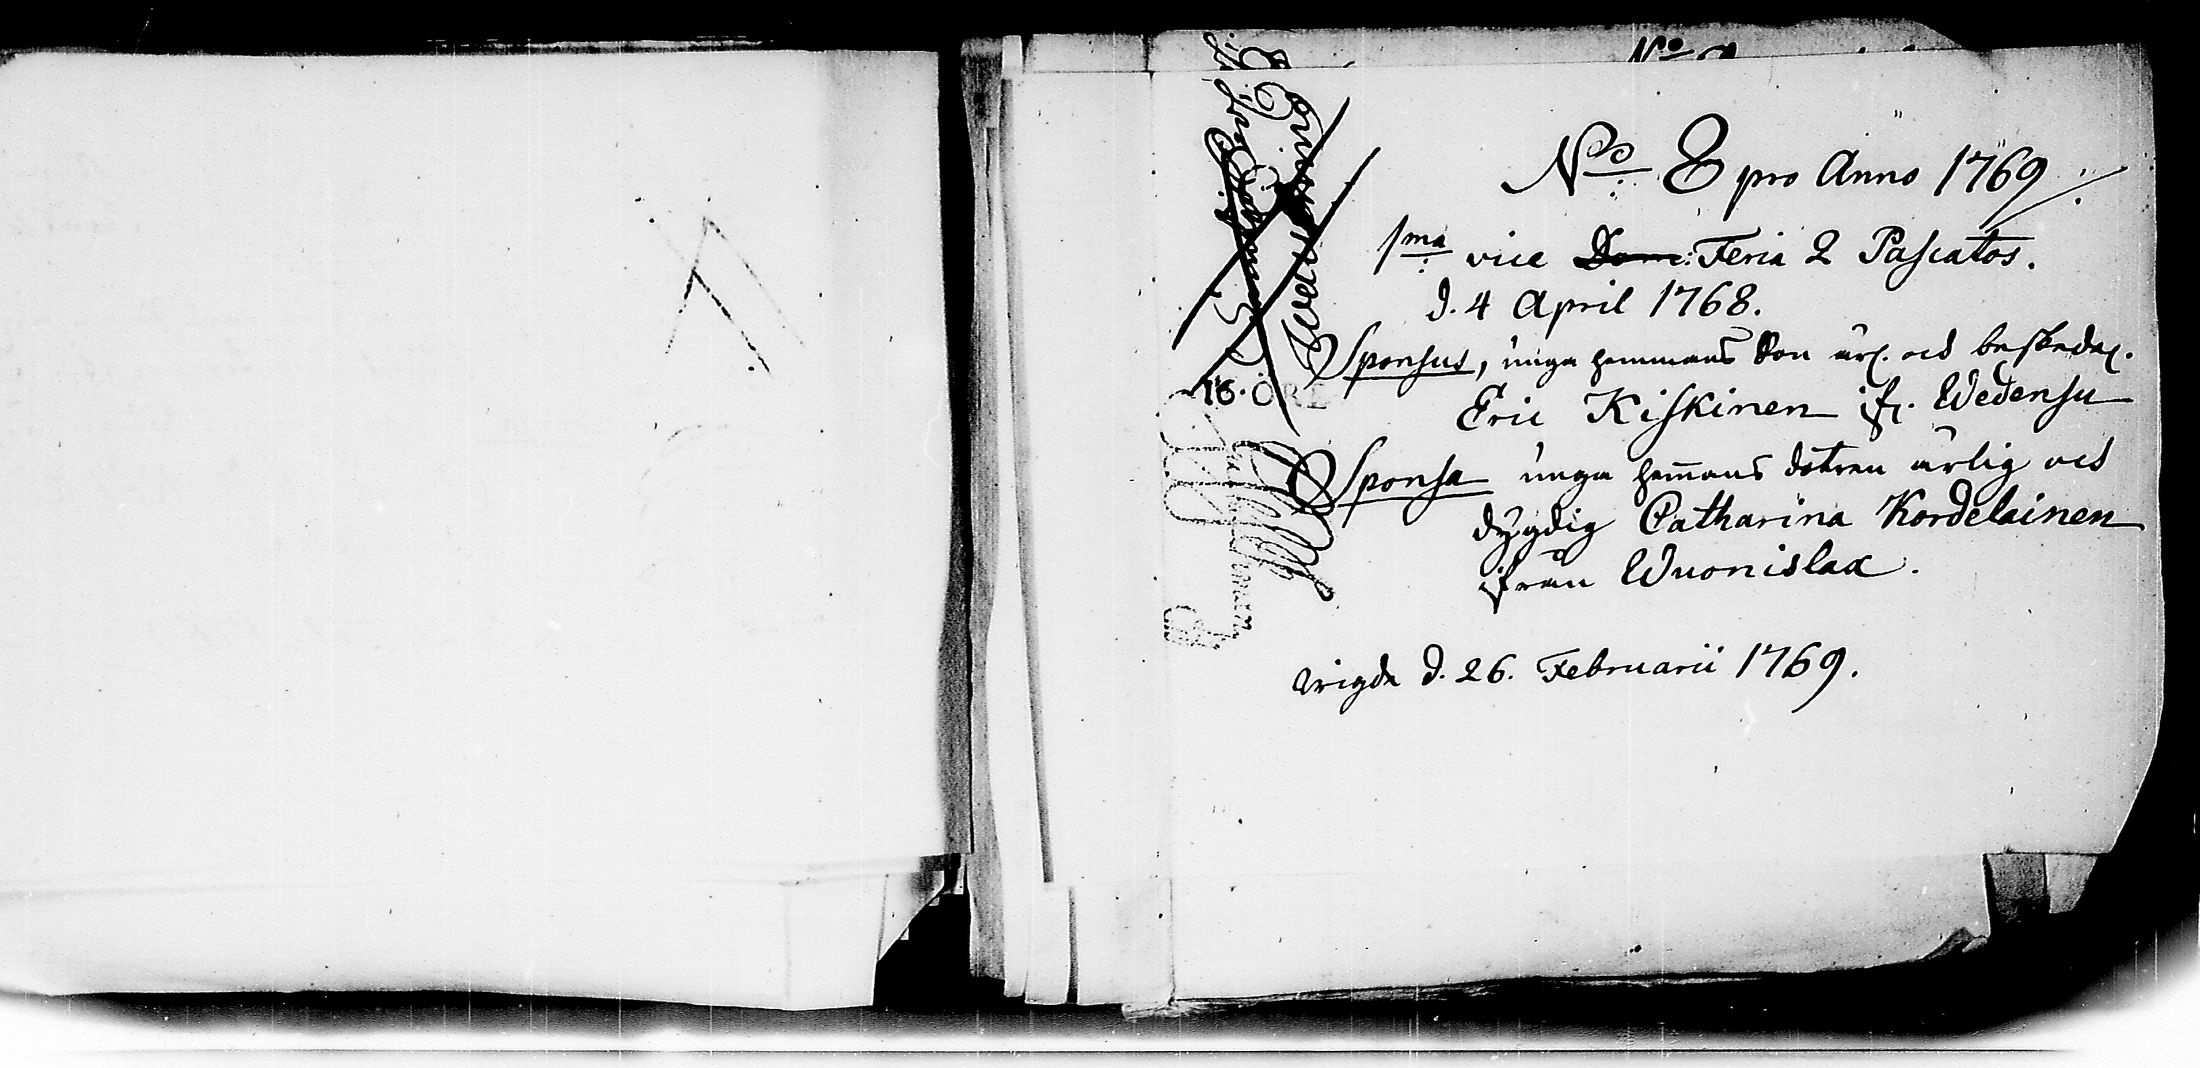 No 8 pro Anno 1769
1ma vice Dom: Feria 2 Paschatos.
d. 4 April 1768.
Sponsus, unga hemmans Son ärl. och beskedel.
Eric Kiskinen ifr. Wedensu
Sponsa unga hemans dotren ärlig och
dygdig Catharina Kordelainen
ifrån Wuonislax.
wigda d. 26. Februarii 1769.
16. ÖRE